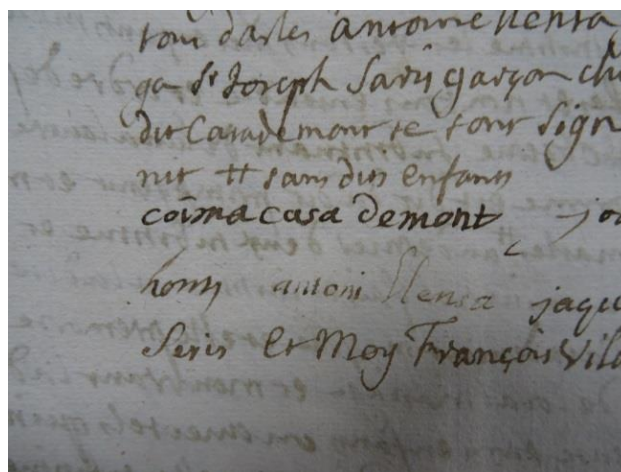 tour darles antoine llensa
ga sr Joseph Saris garçon chi
dit Casademont se sont sign
nit tt sans dits Enfants
coima casa demont jo
antoni llensa jaqu
Seris Et Moy François Vila